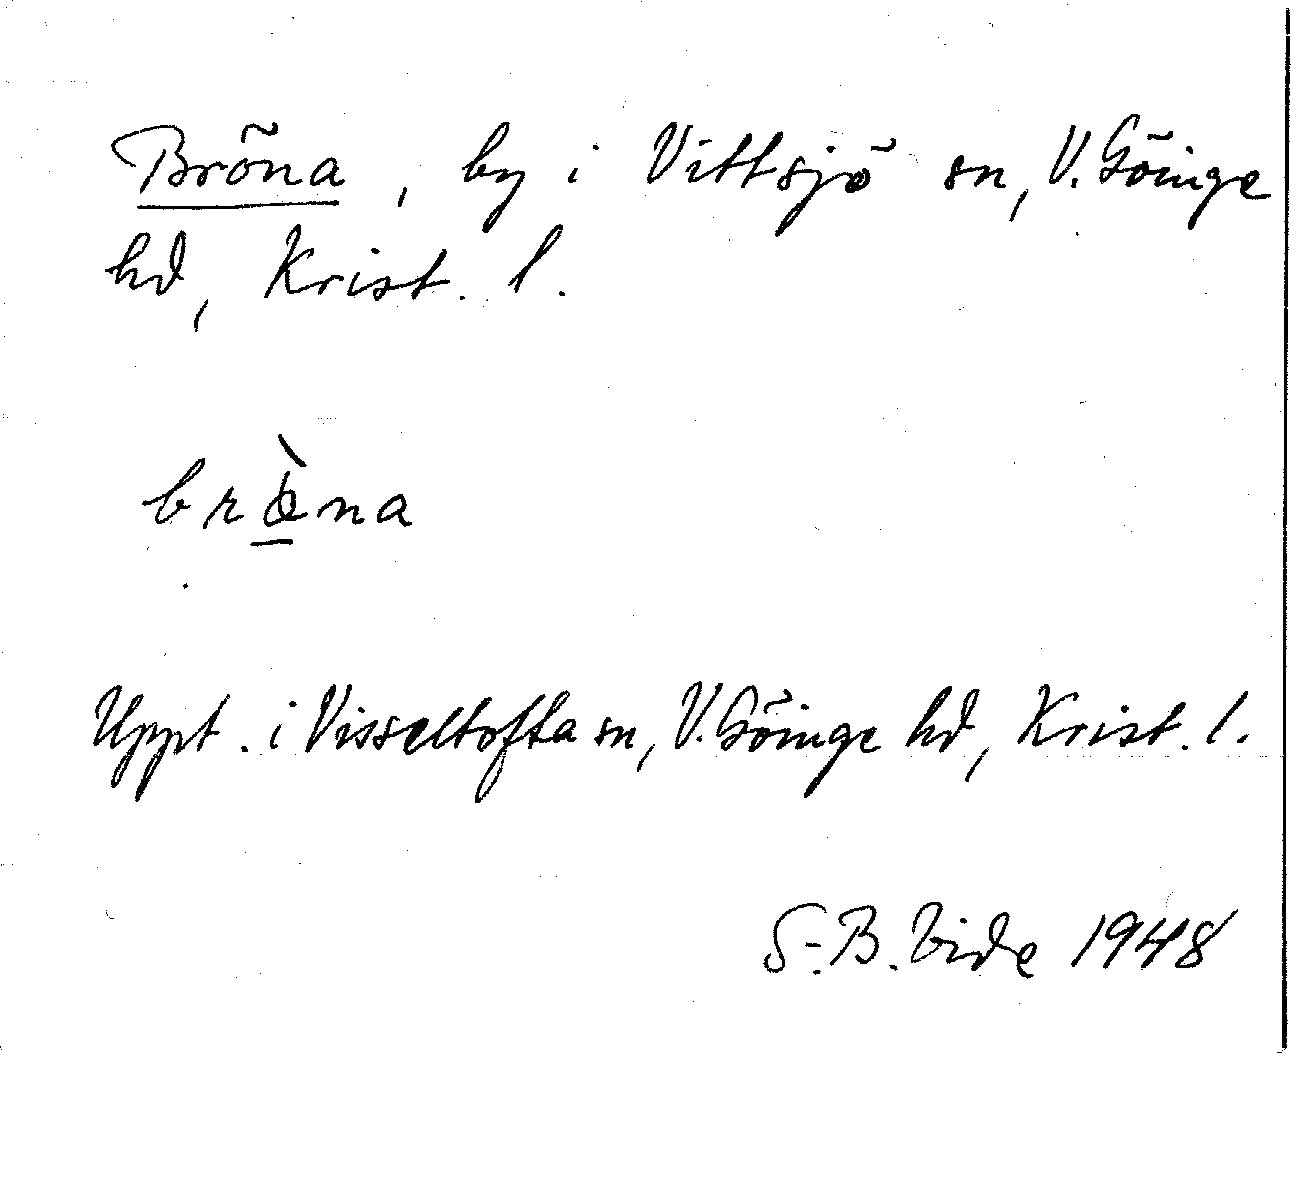 Bröna, by i Vittsjö sn, V. Göinge
hd, Krist. l.
brœ̀na
Uppt. i Visseltofta sn, V. Göinge hd, Krist. l.
S.-B. Vide 1948